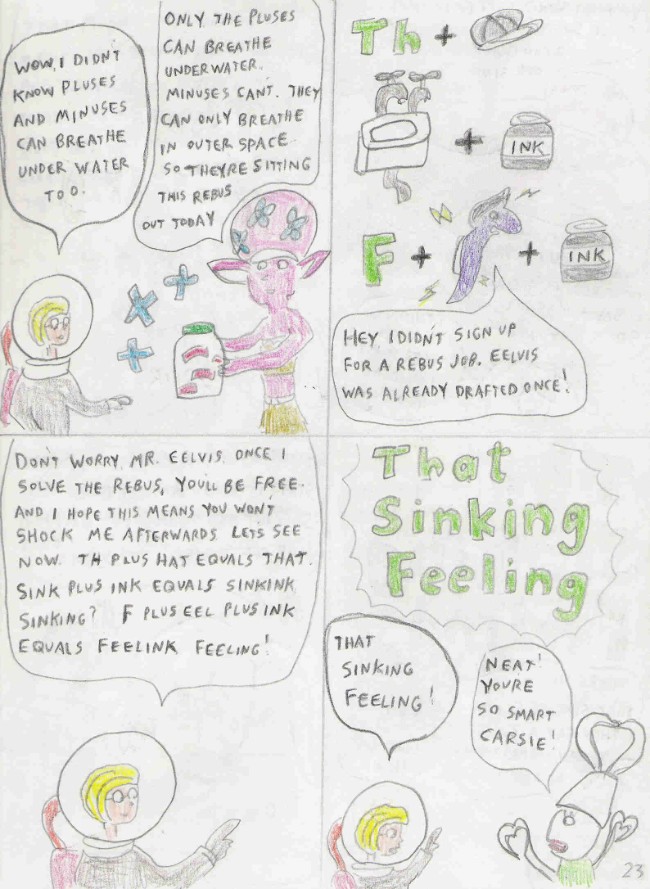 WOW, I DIDN'T
KNOW PLUSES
AND MINUSES
CAN BREATHE
UNDER WATER
TOO.
ONLY THE PLUSES
CAN BREATHE
UNDERWATER.
MINUSES CAN'T. THEY
CAN ONLY BREATHE
IN OUTER SPACE
SO THEYRE SITTING
THIS REBUS
OUT TODAY
Th +
+ INK
F + + INK
HEY, I DIDN'T SIGN UP
FOR A REBUS JOB. EELVIS
WAS ALREADY DRAFTED ONCE!
DON'T WORRY, MR. EELVIS. ONCE I
SOLVE THE REBUS, YOU'LL BE FREE.
AND I HOPE THIS MEANS YOU WON'T
SHOCK ME AFTERWARDS LETS SEE
NOW. TH PLUS HAT EQUALS THAT.
SINK PLUS INK EQUALS SINKINK
SINKING? F PLUS EEL PLUS INK
EQUALS FEELINK FEELING!
That
Sinking
Feeling
THAT
SINKING
FEELING!
NEAT!
YOU'RE
SO SMART
CARSIE!
23